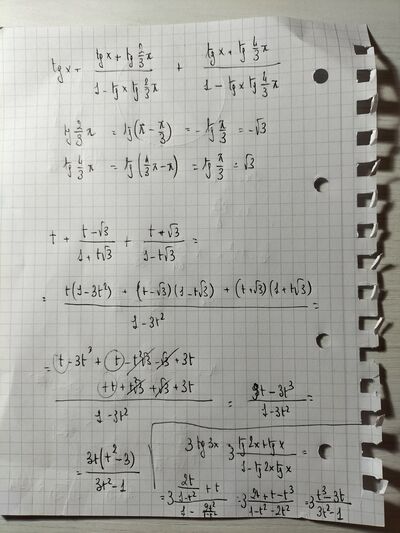 tg x + (tg x + tg 2/3 π)/(1 - tg x tg 2/3 π) + (tg x + tg 4/3 π)/(1 - tg x tg 4/3 π)
tg 2/3 π = tg(π - π/3) = - tg π/3 = -√3
tg 4/3 π = tg(4/3 π - π) = tg π/3 = √3
t + (t - √3)/(1 + t√3) + (t + √3)/(1 - t√3) =
= (t(1 - 3t²) + (t - √3)(1 - t√3) + (t + √3)(1 + t√3))/(1 - 3t²) =
= (t - 3t³ + t - t²√3 - √3 + 3t
+ t + t²√3 + √3 + 3t)/(1 - 3t²) = (9t - 3t³)/(1 - 3t²) =
= 3t(t² - 3)/(3t² - 1)
3 tg 3x 3 (tg 2x + tg x)/(1 - tg 2x tg x) =
= 3 (2t/(1 - t²) + t)/(1 - 2t²/(1 - t²)) = 3 (2t + t - t³)/(1 - t² - 2t²) = 3 (t³ - 3t)/(3t² - 1)